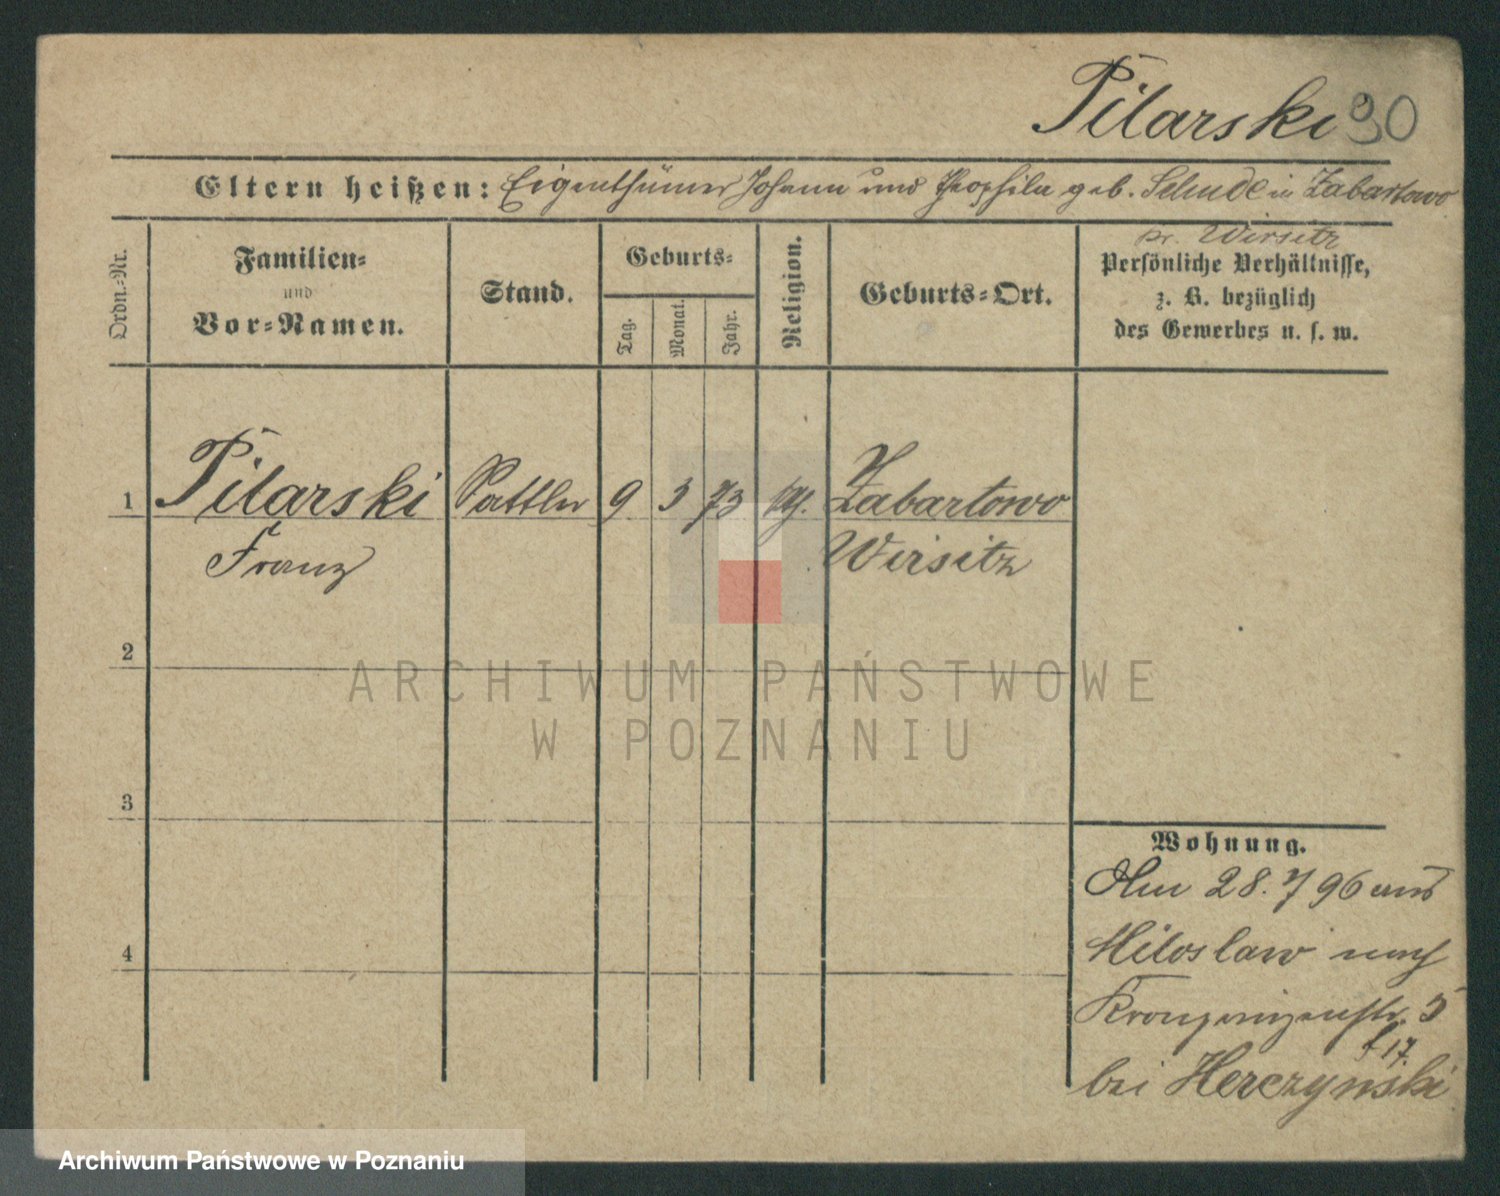 Pilarski 30
Eltern heißen: Eigenthümer Johann und Theophila geb. in Zabartowo
Kr. Wirsitz
Ordn.-Nr.
Familien-
und
Vor-Namen.
Stand.
Geburts-
Tag.
Monat.
Jahr.
Religion.
Geburts-Ort.
Persönliche Verhältnisse,
z. B. bezüglich
des Gewerbes u. s. w.
1 Pilarski Sattler 9 3 73 Zabartowo
Franz Wirsitz
2
3
4
Wohnung.
Am 28. 7 96 aus
Miloslaw nach
Kronprinzenstr. 5
bei Herczyński
ARCHIWUM PAŃSTWOWE
W POZNANIU
Archiwum Państwowe w Poznaniu